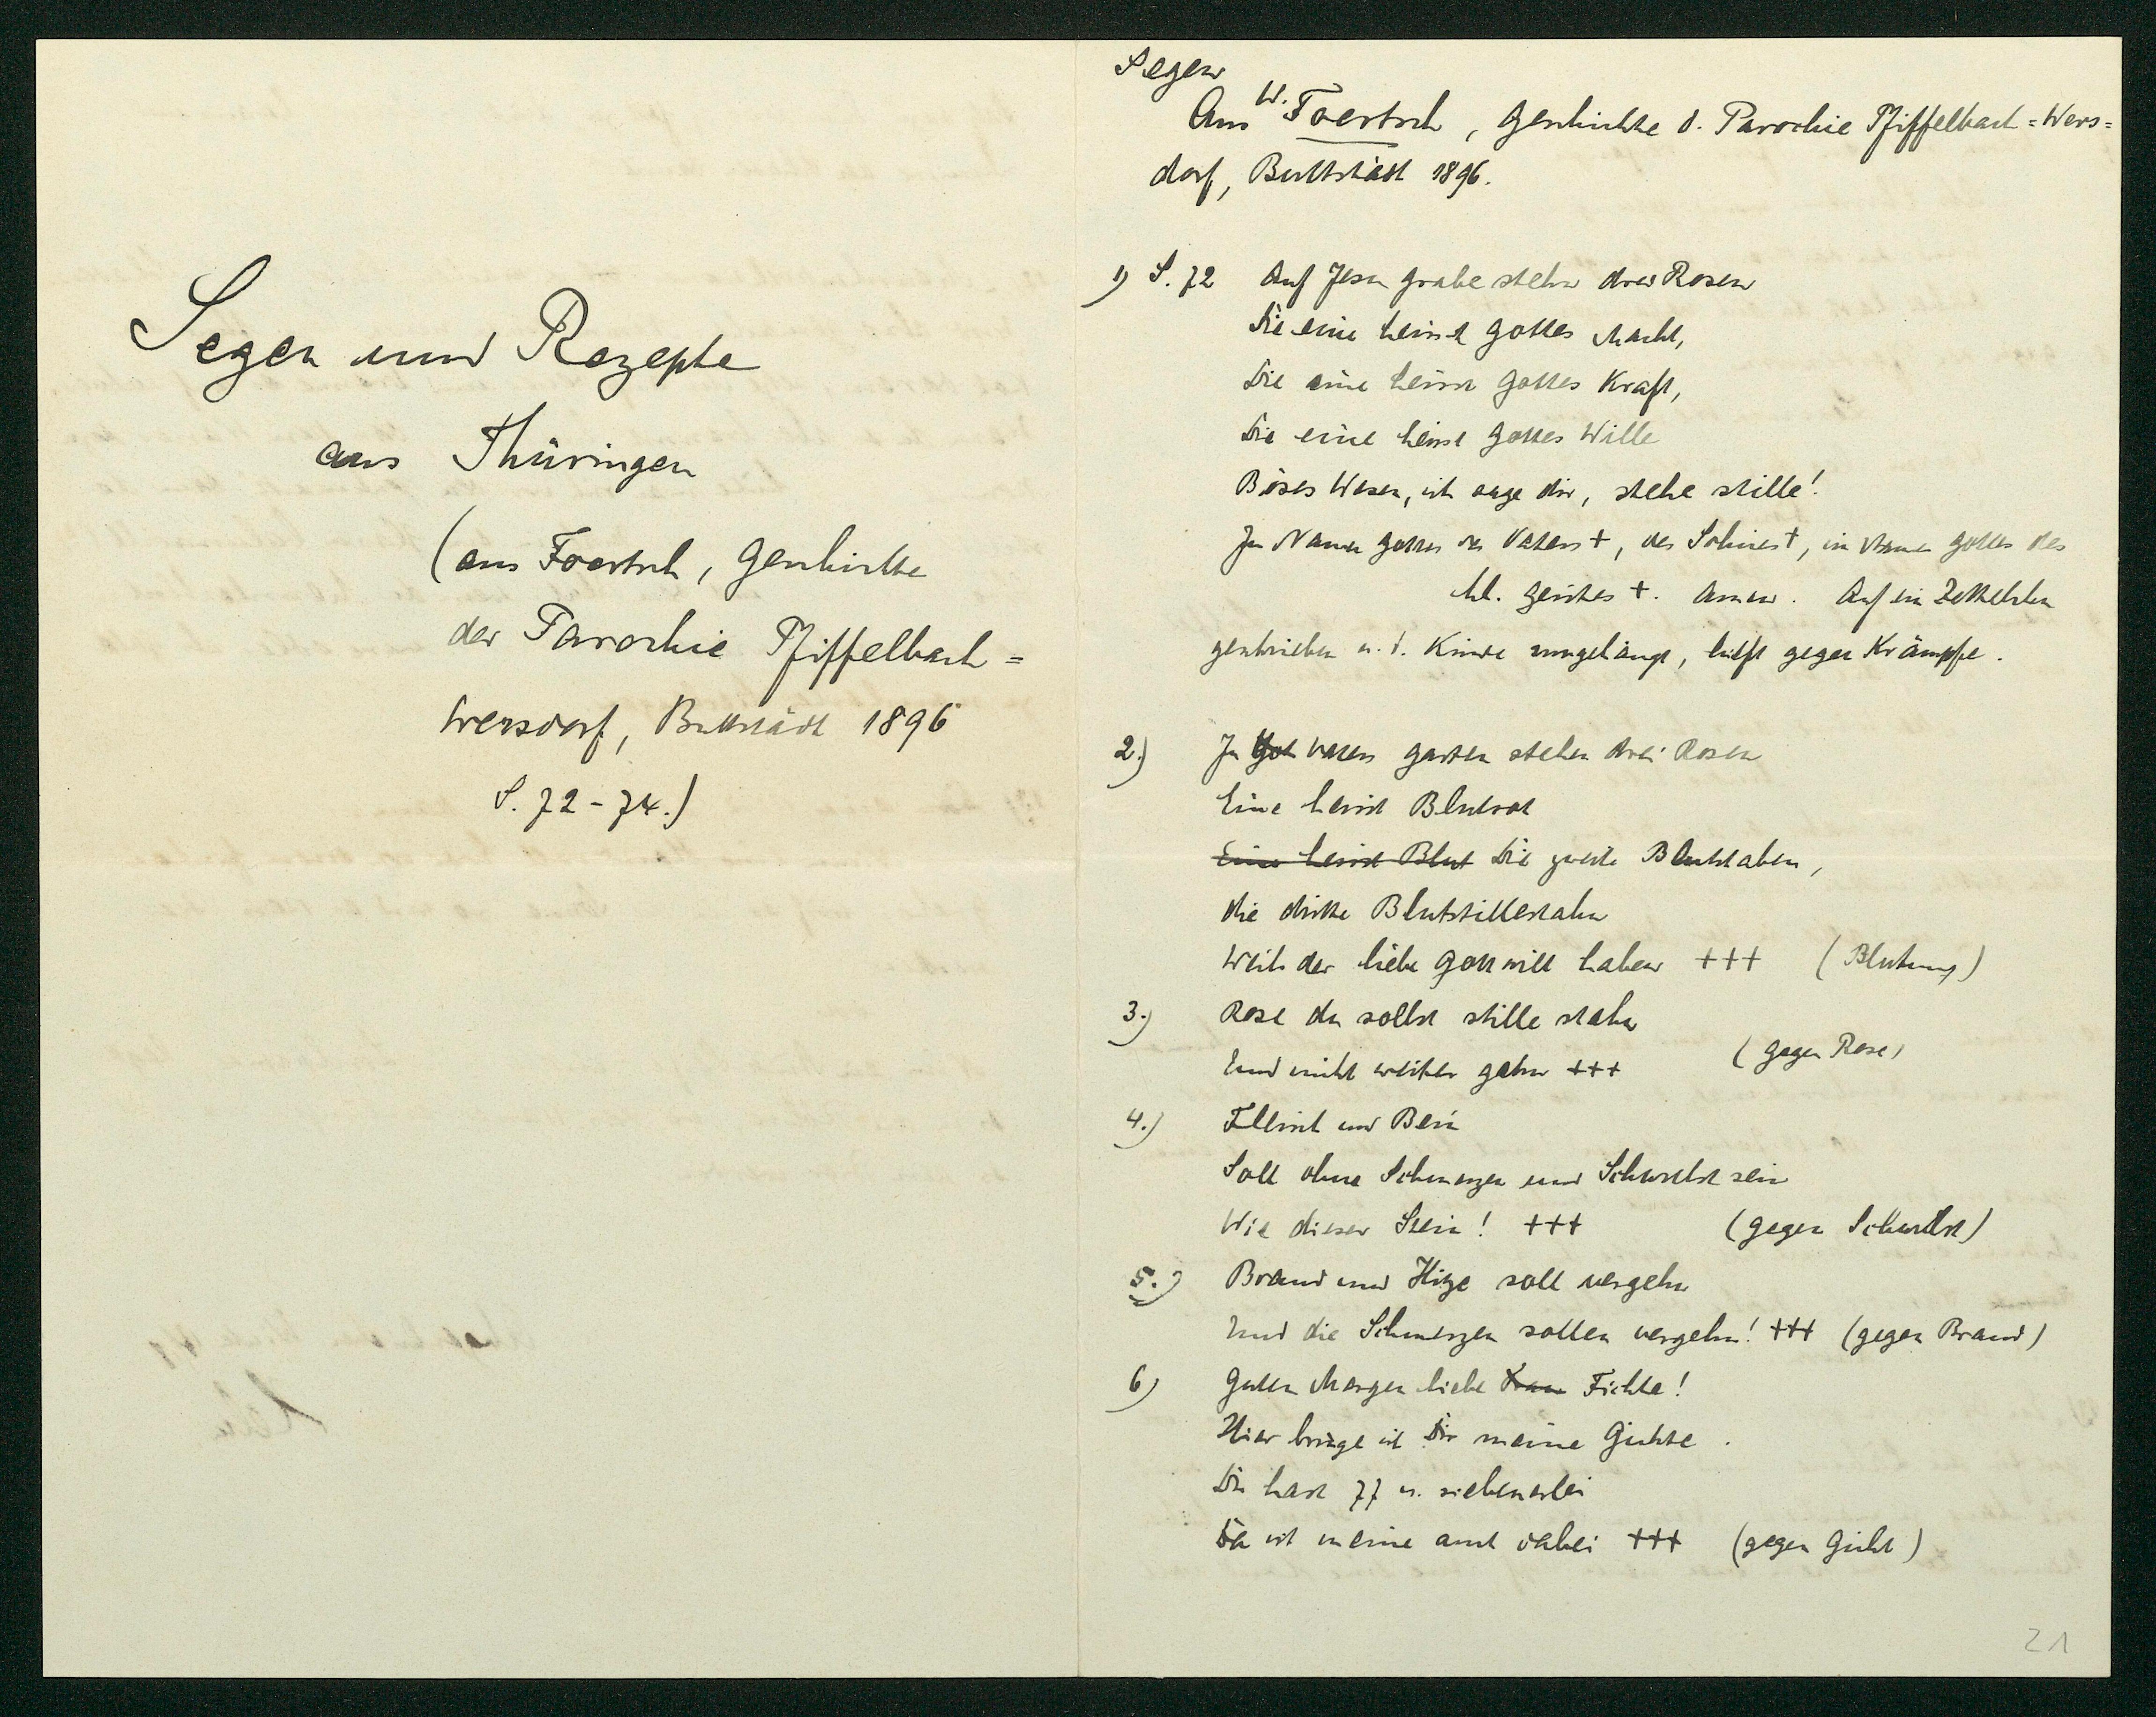 Segen und Rezepte
aus Thüringen
(aus Foertsch, Geschichte
der Parochie Pfiffelbach=
Wersdorf, Buttstädt 1896
S. 72-74.)
Segen
Aus W. Foertsch, Geschichte d. Parochie Pfiffelbach=Wers=
dorf, Buttstädt 1896.
1) S. 72 Auf Jesu Grabe stehn drei Rosen
Die eine heisst Gottes Macht,
Die eine heisst Gottes Kraft,
Die eine heisst Gottes Wille
Böses Wesen, ich sage dir, stehe stille!
Im Namen Gottes des Vaters +, des Sohnes +, im Namen Gottes des
hl. Geistes +. Amen. Auf ein Zettelchen
geschrieben u. d. Kinde umgehängt, hilft gegen Krämpfe.
2.) In Vaters Garten stehen drei Rosen
Eine heisst Blutrot
Eine heisst Blut Die zweite Blutstaben,
die dritte Blutstillestahn
Weils der liebe Gott will haben +++ (Blutung)
3.) Rose du sollst stille stahn
Und nicht weiter gehn +++ (gegen Rose)
4.) Fleisch und Bein
Soll ohne Schmerzen und Schwulst sein
Wie dieser Stein! +++ (gegen Schwulst)
5.) Brand und Hitze soll vergehn
Und die Schmerzen sollen vergehn! +++ (gegen Brand)
6) Guten Morgen liebe Frau Fichte!
Hier bringe ich Dir meine Gichte.
Du hast 77 u. siebenerlei
Da ist meine auch dabei +++ (gegen Gicht)
21